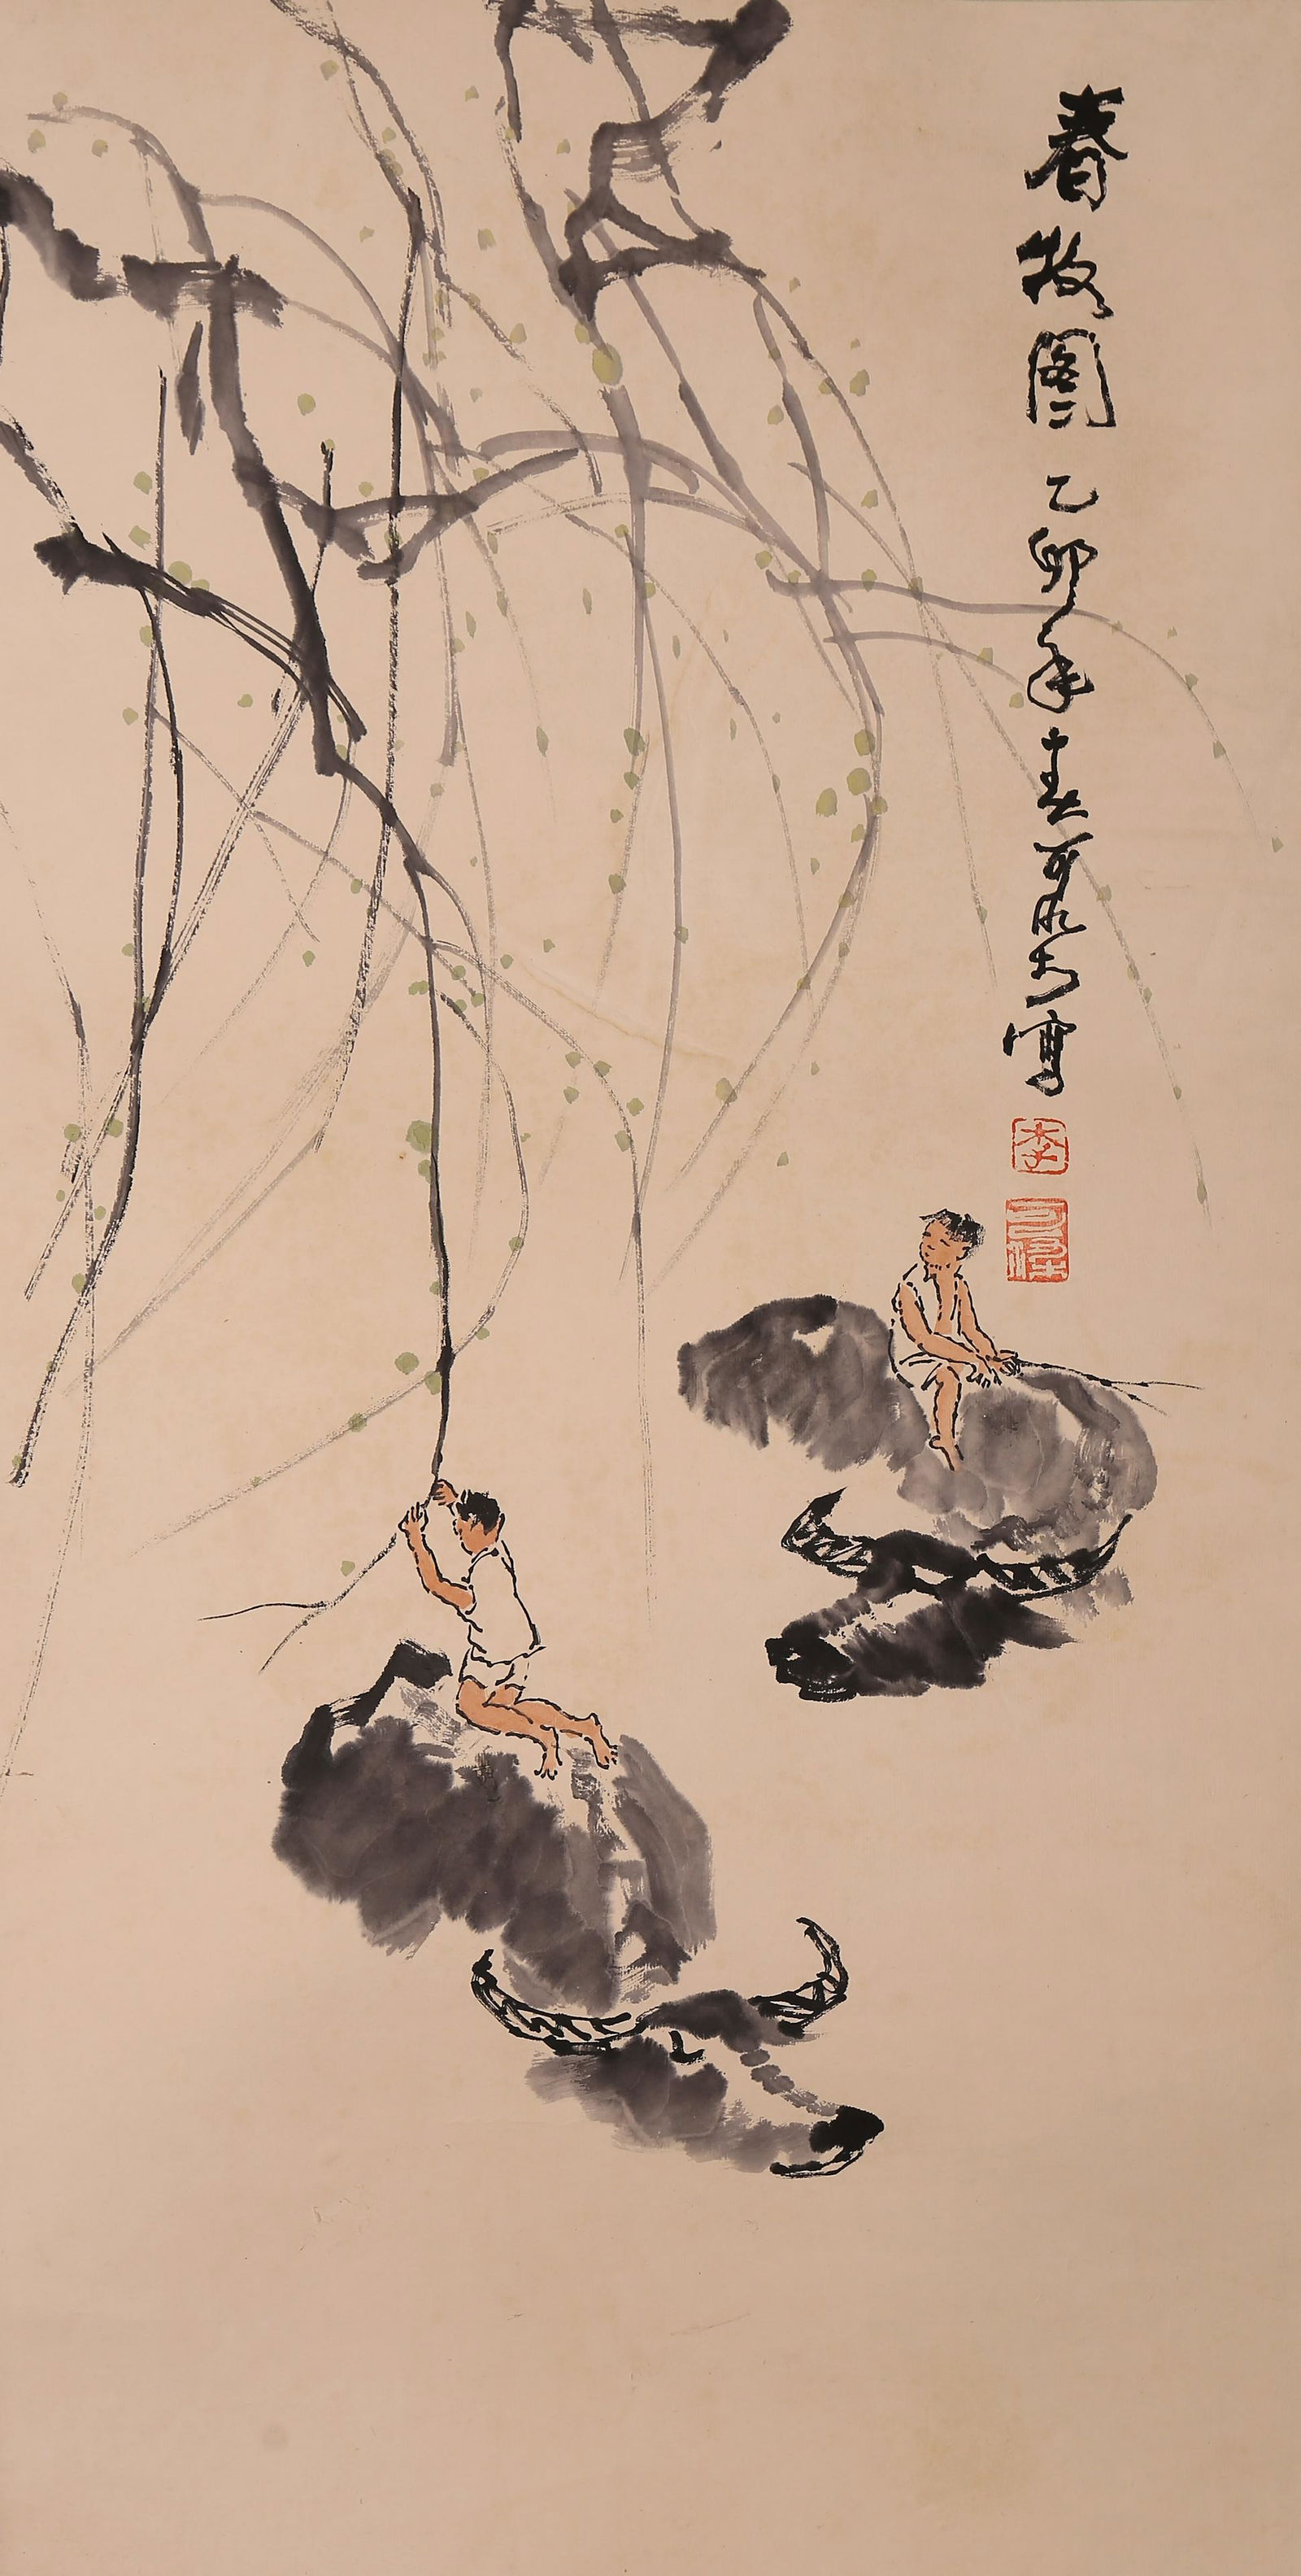 春牧图 乙卯年春可染寫
李
可染